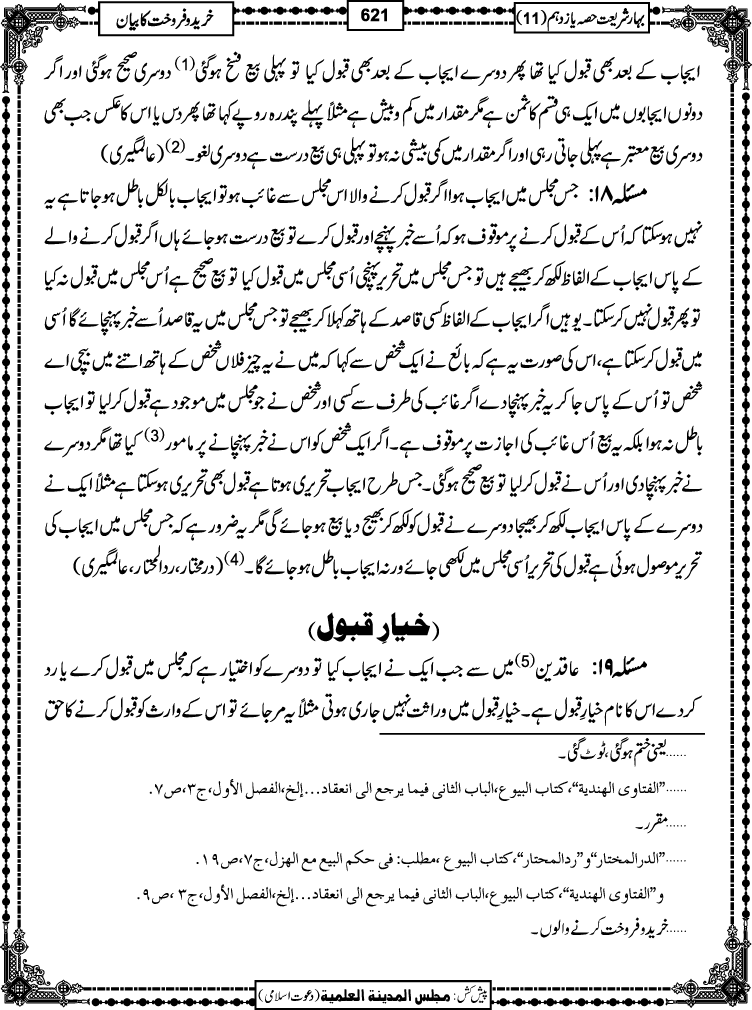 بہارشریعت حصہ یازدہم (11)
621
خریدوفروخت کا بیان
ایجاب کے بعد بھی قبول کیا تھا پھر دوسرے ایجاب کے بعد بھی قبول کیا تو پہلی بیع فسخ ہوگئی(1) دوسری صحیح ہوگئی اور اگر
دونوں ایجابوں میں ایک ہی قسم کا ثمن ہے مگر مقدار میں کم و بیش ہے مثلاً پہلے پندرہ روپے کہا تھا پھر دس یا اس کا عکس جب بھی
دوسری بیع معتبر ہے پہلی جاتی رہی اور اگر مقدار میں کمی بیشی نہ ہو تو پہلی ہی بیع درست ہے دوسری لغو۔(2) (عالمگیری)
مسئلہ ۱۸: جس مجلس میں ایجاب ہوا اگر قبول کرنے والا اس مجلس سے غائب ہو تو ایجاب بالکل باطل ہوجاتا ہے یہ
نہیں ہوسکتا کہ اُس کے قبول کرنے پر موقوف ہو کہ اُسے خبر پہنچے اور قبول کرے تو بیع درست ہوجائے ہاں اگر قبول کرنے والے
کے پاس ایجاب کے الفاظ لکھ کر بھیجے ہیں تو جس مجلس میں تحریر پہنچی اُسی مجلس میں قبول کیا تو بیع صحیح ہے اُس مجلس میں قبول نہ کیا
تو پھر قبول نہیں کرسکتا۔ یوہیں اگر ایجاب کے الفاظ کسی قاصد کے ہاتھ کہلا کر بھیجے تو جس مجلس میں یہ قاصد اُسے خبر پہنچائے گا اُسی
میں قبول کرسکتا ہے، اس کی صورت یہ ہے کہ بائع نے ایک شخص سے کہا کہ میں نے یہ چیز فلاں شخص کے ہاتھ اتنے میں بیچی اے
شخص تو اُس کے پاس جا کر یہ خبر پہنچا دے اگر غائب کی طرف سے کسی اور شخص نے جو مجلس میں موجود ہے قبول کرلیا تو ایجاب
باطل نہ ہوا بلکہ یہ بیع اُس غائب کی اجازت پر موقوف ہے۔ اگر ایک شخص کو اس نے خبر پہنچانے پر مامور(3) کیا تھا مگر دوسرے
نے خبر پہنچادی اور اُس نے قبول کرلیا تو بیع صحیح ہوگئی۔ جس طرح ایجاب تحریری ہوتا ہے قبول بھی تحریری ہوسکتا ہے مثلاً ایک نے
دوسرے کے پاس ایجاب لکھ کر بھیجا دوسرے نے قبول کو لکھ کر بھیج دیا بیع ہوجائے گی مگر یہ ضرور ہے کہ جس مجلس میں ایجاب کی
تحریر موصول ہوئی ہے قبول کی تحریر اُسی مجلس میں لکھی جائے ورنہ ایجاب باطل ہوجائے گا۔(4) (درمختار، ردالمحتار، عالمگیری)
(خیارِ قبول)
مسئلہ ۱۹: عاقدین(5) میں سے جب ایک نے ایجاب کیا تو دوسرے کو اختیار ہے کہ مجلس میں قبول کرے یا رد
کردے اس کا نام خیارِ قبول ہے۔ خیارِ قبول میں وراثت نہیں جاری ہوتی مثلاً یہ مرجائے تو اس کے وارث کو قبول کرنے کا حق
......یعنی ختم ہوگئی، ٹوٹ گئی۔
......"الفتاوی الھندیۃ"، کتاب البیوع، الباب الثانی فیما یرجع الی انعقاد...إلخ، الفصل الأول، ج۳، ص۷.
......مقرر۔
......"الدرالمختار" و "ردالمحتار"، کتاب البیوع، مطلب: فی حکم البیع مع الھزل، ج۷، ص۱۹.
و "الفتاوی الھندیۃ"، کتاب البیوع، الباب الثانی فیما یرجع الی انعقاد...إلخ، الفصل الأول، ج۳، ص۹.
......خریدوفروخت کرنے والوں۔
پیش کش: مجلس المدینۃ العلمیۃ (دعوت اسلامی)